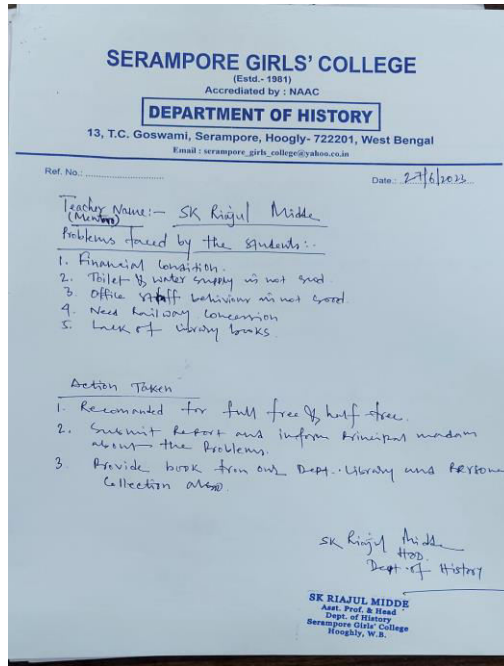 SERAMPORE GIRLS' COLLEGE
(Estd.- 1981)
Accredited by : NAAC
DEPARTMENT OF HISTORY
13, T.C. Goswami, Serampore, Hoogly- 722201, West Bengal
Email : serampore_girls_college@yahoo.co.in
Ref. No.: Date: 27/6/2023
Teacher Name:- SK Riajul Midde
(Mentor)
Problems faced by the students:-
1. Financial Condition.
2. Toilet & water supply is not good.
3. Office staff behaviour is not good.
4. Need Railway Concession
5. Lack of library books.
Action Taken
1. Recomanded for full free & half free.
2. Submit Report and inform Principal madam
about the Problems.
3 Provide book from our Dept. Library and Persona
Collection also.
SK Riajul Midde
HOD.
Dept. of History
SK RIAJUL MIDDE
Asst. Prof. & Head
Dept. of History
Serampore Girls' College
Hooghly, W.B.